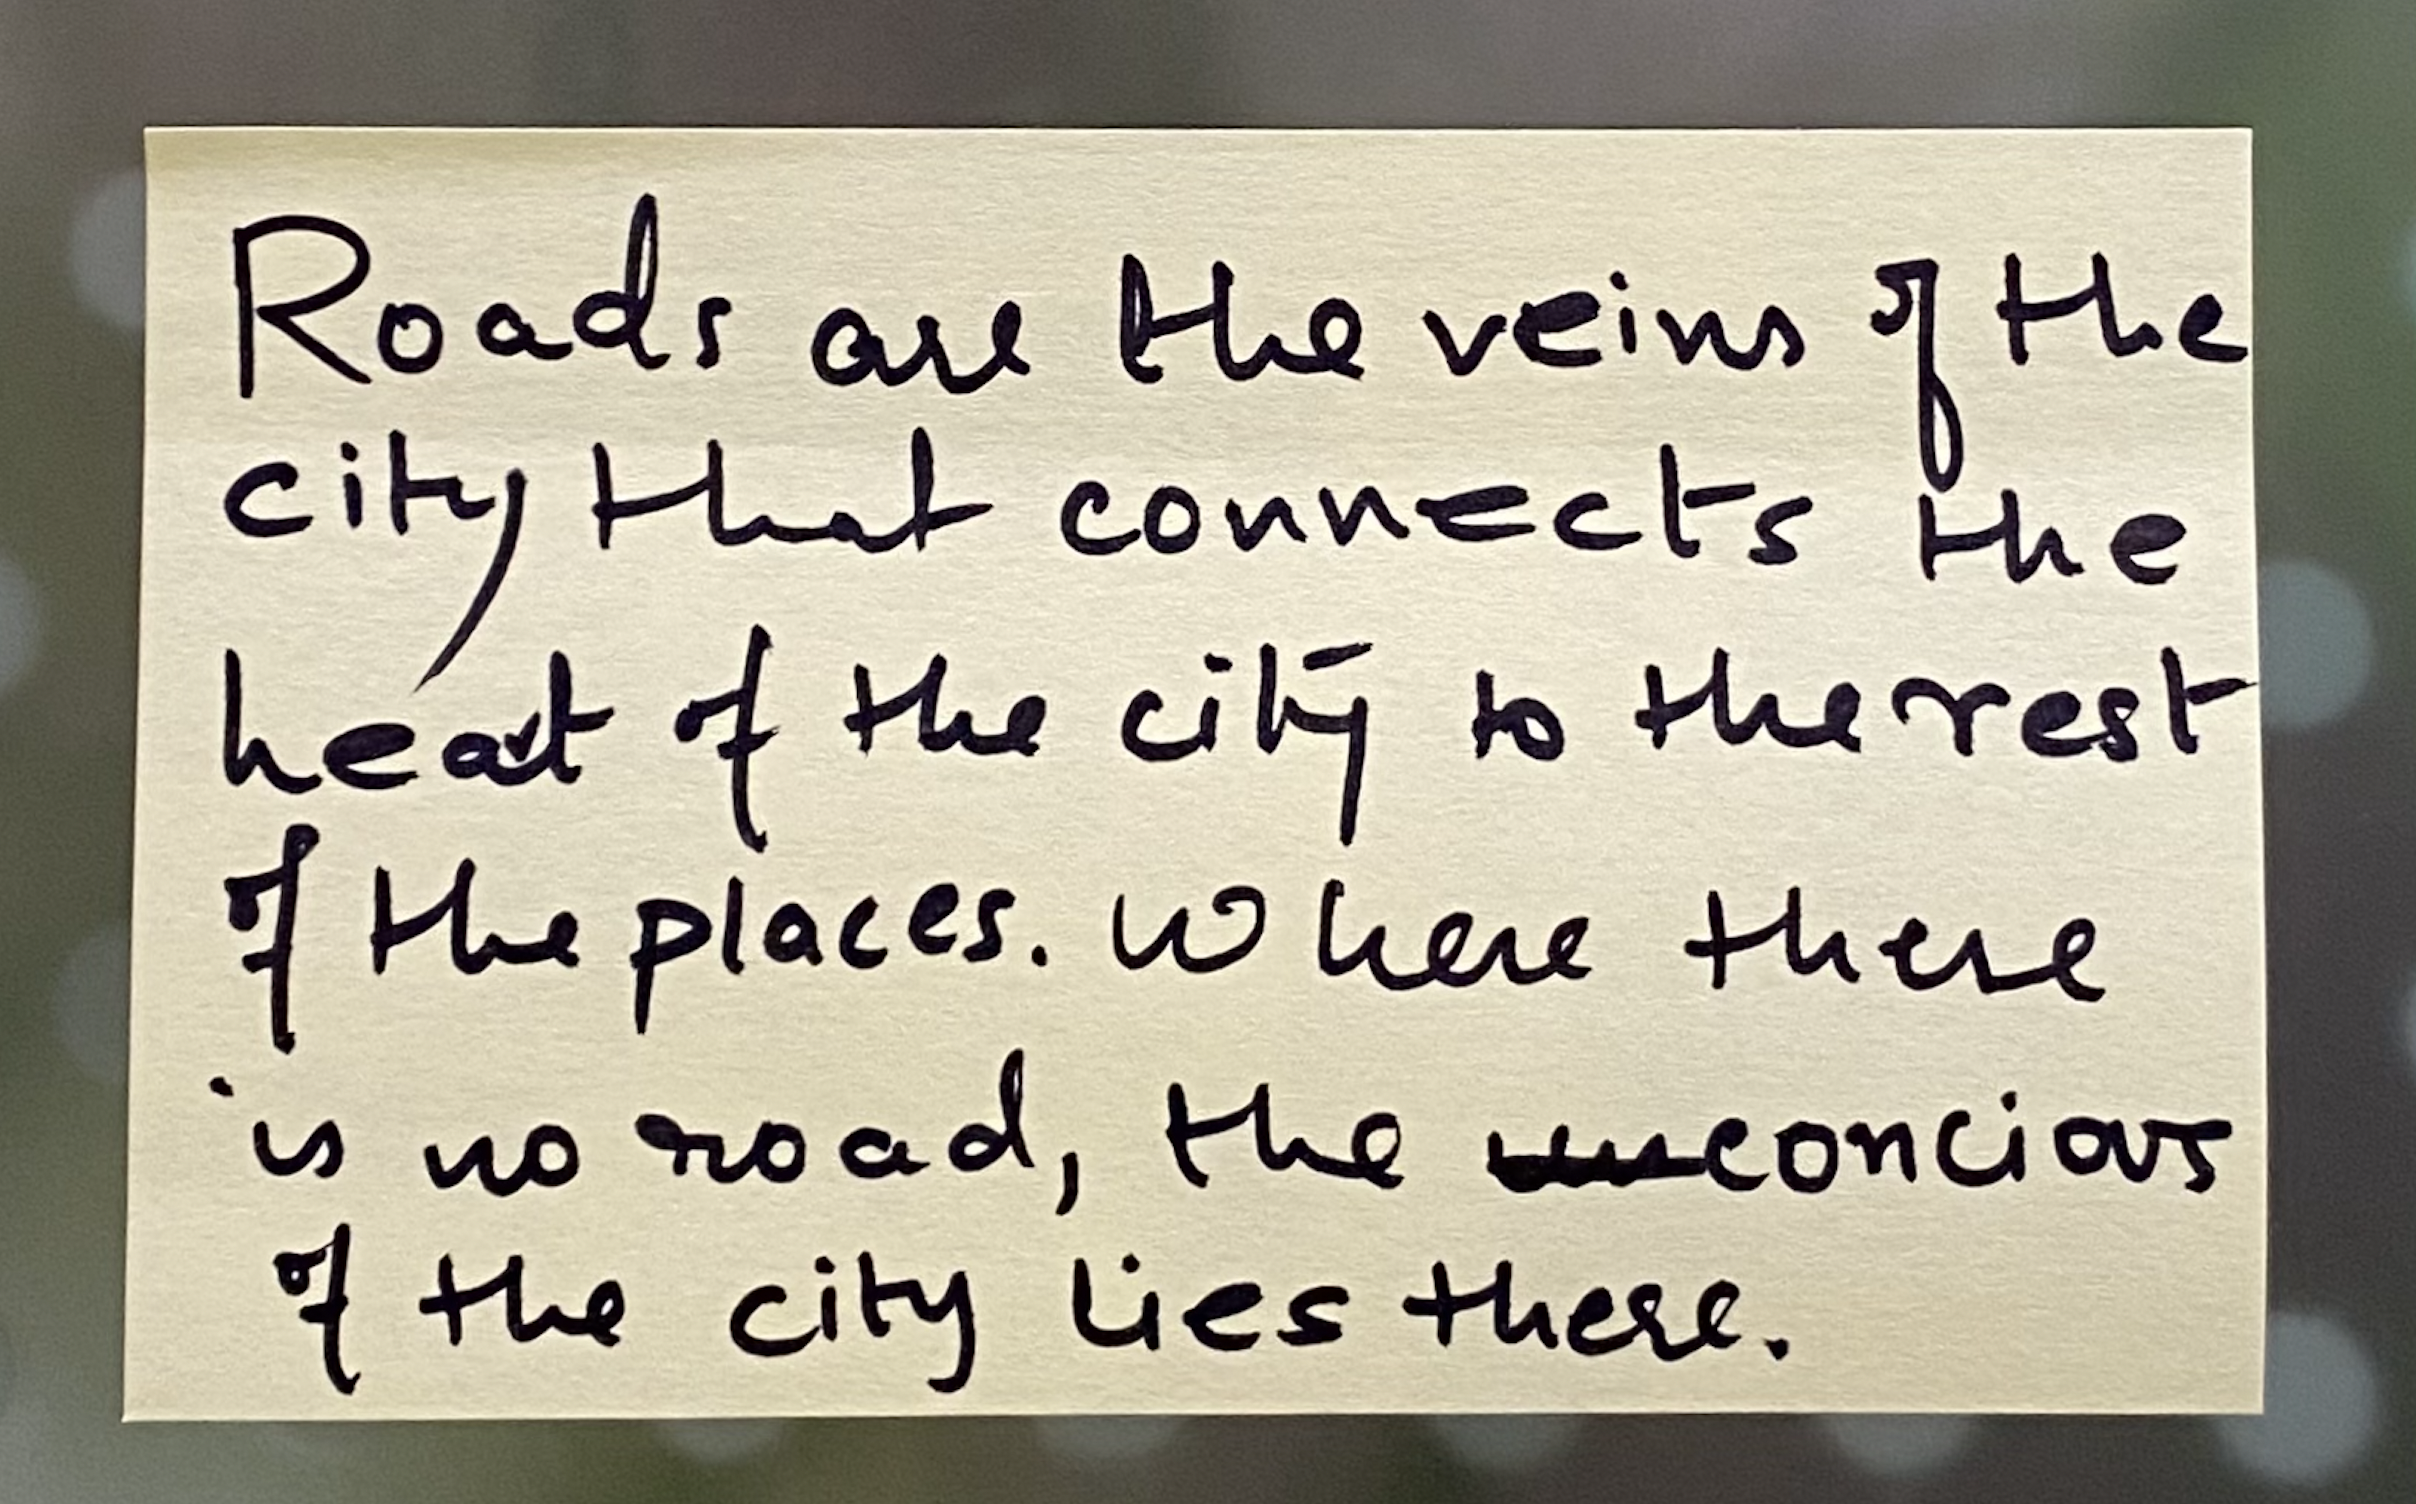 Roads are the veins of the
city that connects the
heart of the city to the rest
of the places. Where there
is no road, the unconcious
of the city lies there.